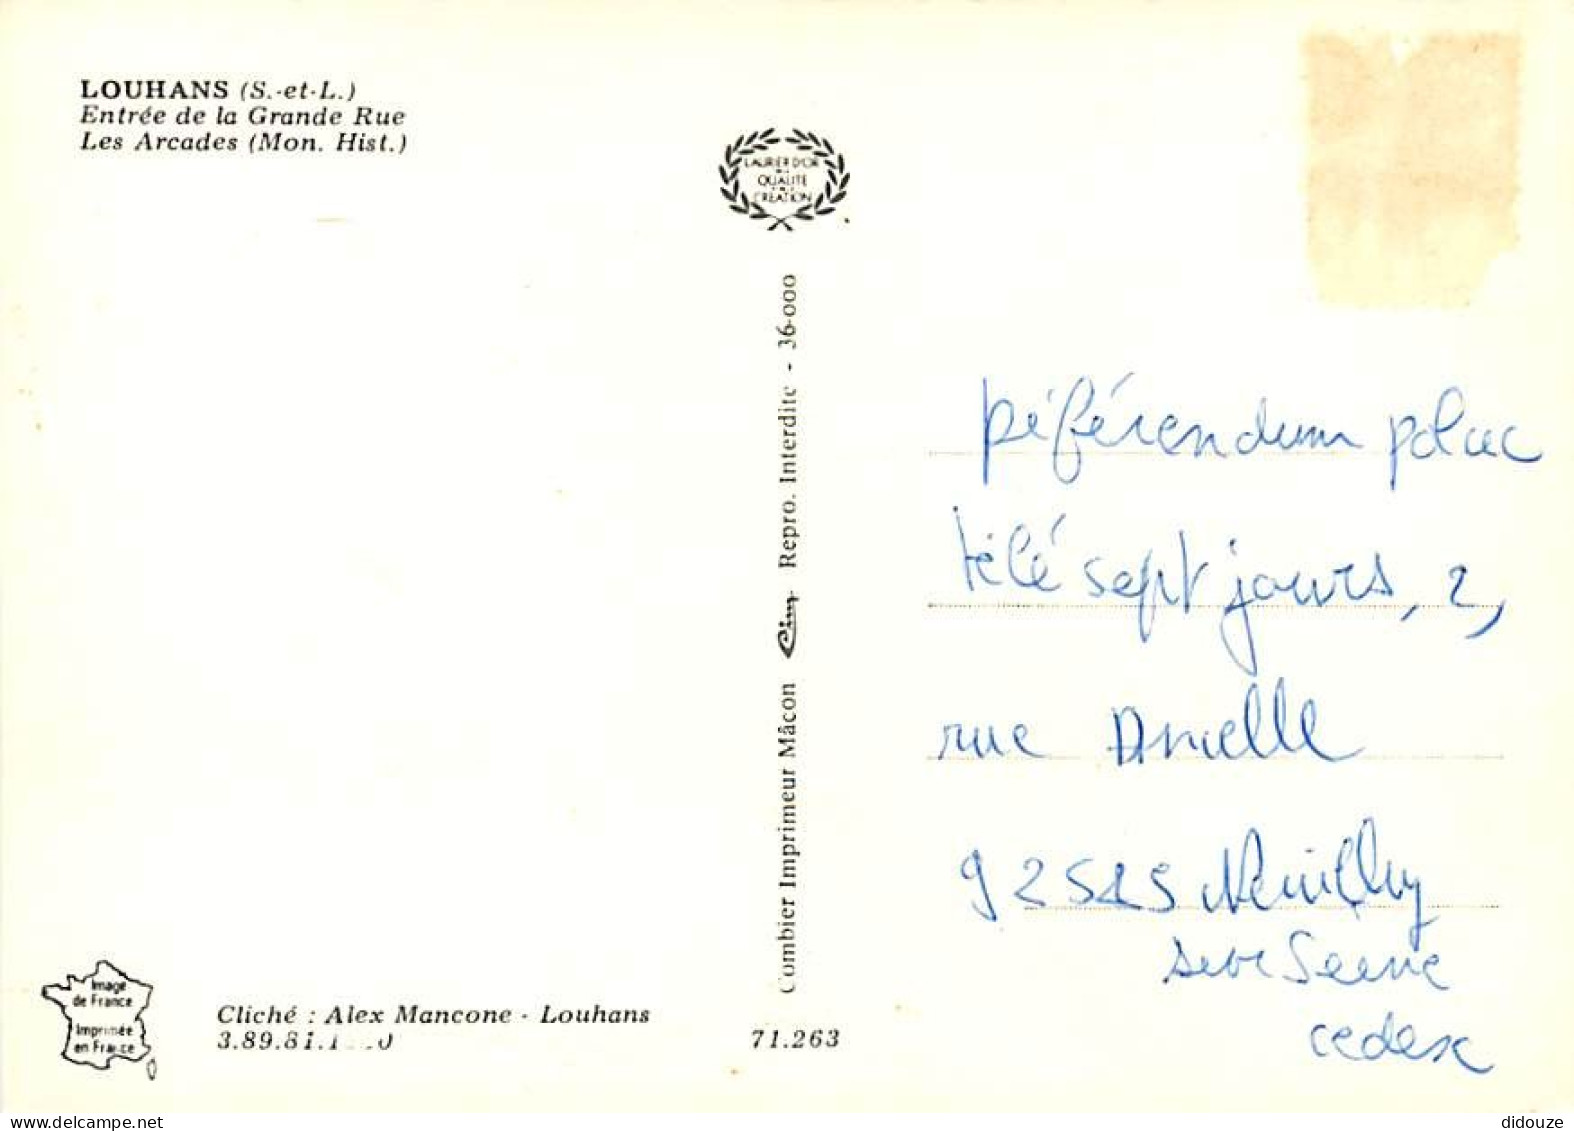 LOUHANS (S.-et-L.)
Entrée de la Grande Rue
Les Arcades (Mon. Hist.)
LAURIER D'OR
QUALITE
CREATION
Combier Imprimeur Mâcon Cim Repro. Interdite - 36-000
référendum
télé sept jours, 2,
rue Anielle
92525 Neuilly
sur Seine
cedex
Image
de France
Imprimée
en France
Cliché : Alex Mancone - Louhans
3.89.81.1
71.263
didouze